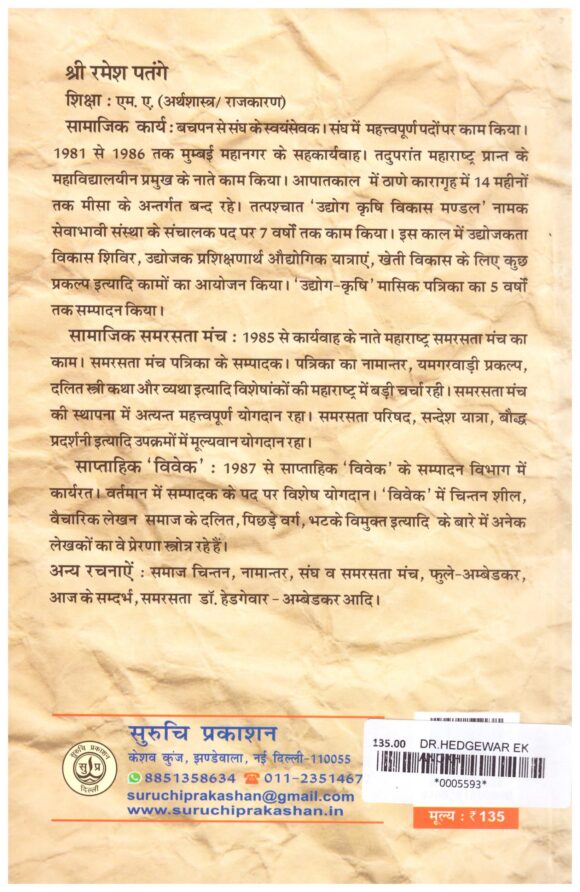 श्री रमेश पतंगे
शिक्षा : एम. ए. (अर्थशास्त्र/ राजकारण)
सामाजिक कार्य : बचपन से संघ के स्वयंसेवक। संघ में महत्त्वपूर्ण पदों पर काम किया।
1981 से 1986 तक मुम्बई महानगर के सहकार्यवाह। तदुपरांत महाराष्ट्र प्रान्त के
महाविद्यालयीन प्रमुख के नाते काम किया। आपातकाल में ठाणे कारागृह में 14 महीनों
तक मीसा के अन्तर्गत बन्द रहे। तत्पश्चात 'उद्योग कृषि विकास मण्डल' नामक
सेवाभावी संस्था के संचालक पद पर 7 वर्षों तक काम किया। इस काल में उद्योजकता
विकास शिविर, उद्योजक प्रशिक्षणार्थ औद्योगिक यात्राएं, खेती विकास के लिए कुछ
प्रकल्प इत्यादि कामों का आयोजन किया। 'उद्योग-कृषि' मासिक पत्रिका का 5 वर्षों
तक सम्पादन किया।
सामाजिक समरसता मंच : 1985 से कार्यवाह के नाते महाराष्ट्र समरसता मंच का
काम। समरसता मंच पत्रिका के सम्पादक। पत्रिका का नामान्तर, यमगरवाड़ी प्रकल्प,
दलित स्त्री कथा और व्यथा इत्यादि विशेषांकों की महाराष्ट्र में बड़ी चर्चा रही। समरसता मंच
की स्थापना में अत्यन्त महत्त्वपूर्ण योगदान रहा। समरसता परिषद, सन्देश यात्रा, बौद्ध
प्रदर्शनी इत्यादि उपक्रमों में मूल्यवान योगदान रहा।
साप्ताहिक 'विवेक' : 1987 से साप्ताहिक 'विवेक' के सम्पादन विभाग में
कार्यरत। वर्तमान में सम्पादक के पद पर विशेष योगदान। 'विवेक' में चिन्तन शील,
वैचारिक लेखन समाज के दलित, पिछड़े वर्ग, भटके विमुक्त इत्यादि के बारे में अनेक
लेखकों का वे प्रेरणा स्त्रोत्र रहे हैं।
अन्य रचनाऐं : समाज चिन्तन, नामान्तर, संघ व समरसता मंच, फुले-अम्बेडकर,
आज के सन्दर्भ, समरसता डॉ. हेडगेवार - अम्बेडकर आदि।
सुरुचि प्रकाशन
दिल्ली
सु प्र
सुरुचि प्रकाशन
केशव कुंज, झण्डेवाला, नई दिल्ली-110055
8851358634 011-2351467
suruchiprakashan@gmail.com
www.suruchiprakashan.in
135.00 DR.HEDGEWAR EK
*0005593*
मूल्य : ₹ 135